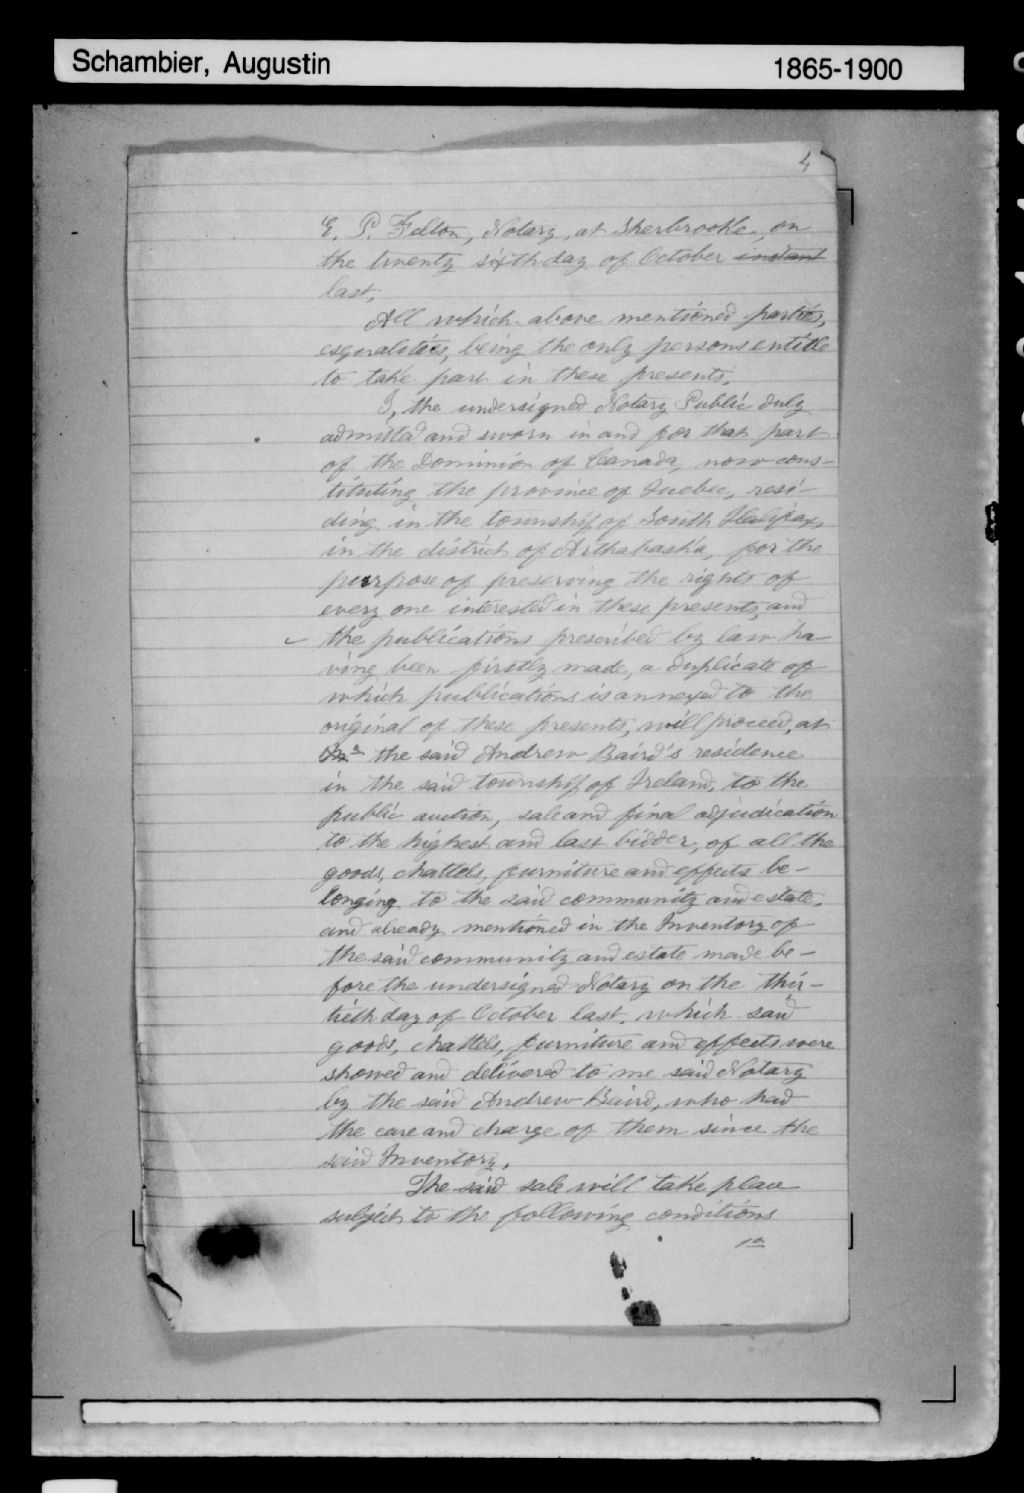 Schambier, Augustin
1865-1900
4
E. P. Felton, Notary, at Sherbrooke, on
the twenty sixth day of October instant
last.
All which above mentioned parties,
esqualities, being the only persons entitle
to take part in these presents.
I, the undersigned Notary Public duly
admitted and sworn in and for that part
of the Dominion of Canada, now cons-
tituting the province of Quebec, resi-
ding in the township of South Halifax,
in the district of Arthabaska, for the
purpose of preserving the rights of
every one interested in these presents, and
the publications prescribed by law ha
ving been firstly made, a duplicate of
which publications is annexed to the
original of these presents, will proceed, at
the said Andrew Baird's residence
in the said township of Ireland, to the
public auction, sale and final adjudication
to the highest and last bidder, of all the
goods, chattels, furniture and effects be-
longing to the said community and estate,
and already mentioned in the Inventory of
the said community and estate made be-
fore the undersigned Notary on the thir-
tieth day of October last. which said
goods, chattels, furniture and effects were
showed and delivered to me said Notary
by the said Andrew Baird, who had
the care and charge of them since the
said Inventory.
The said sale will take place
subject to the following conditions
1o